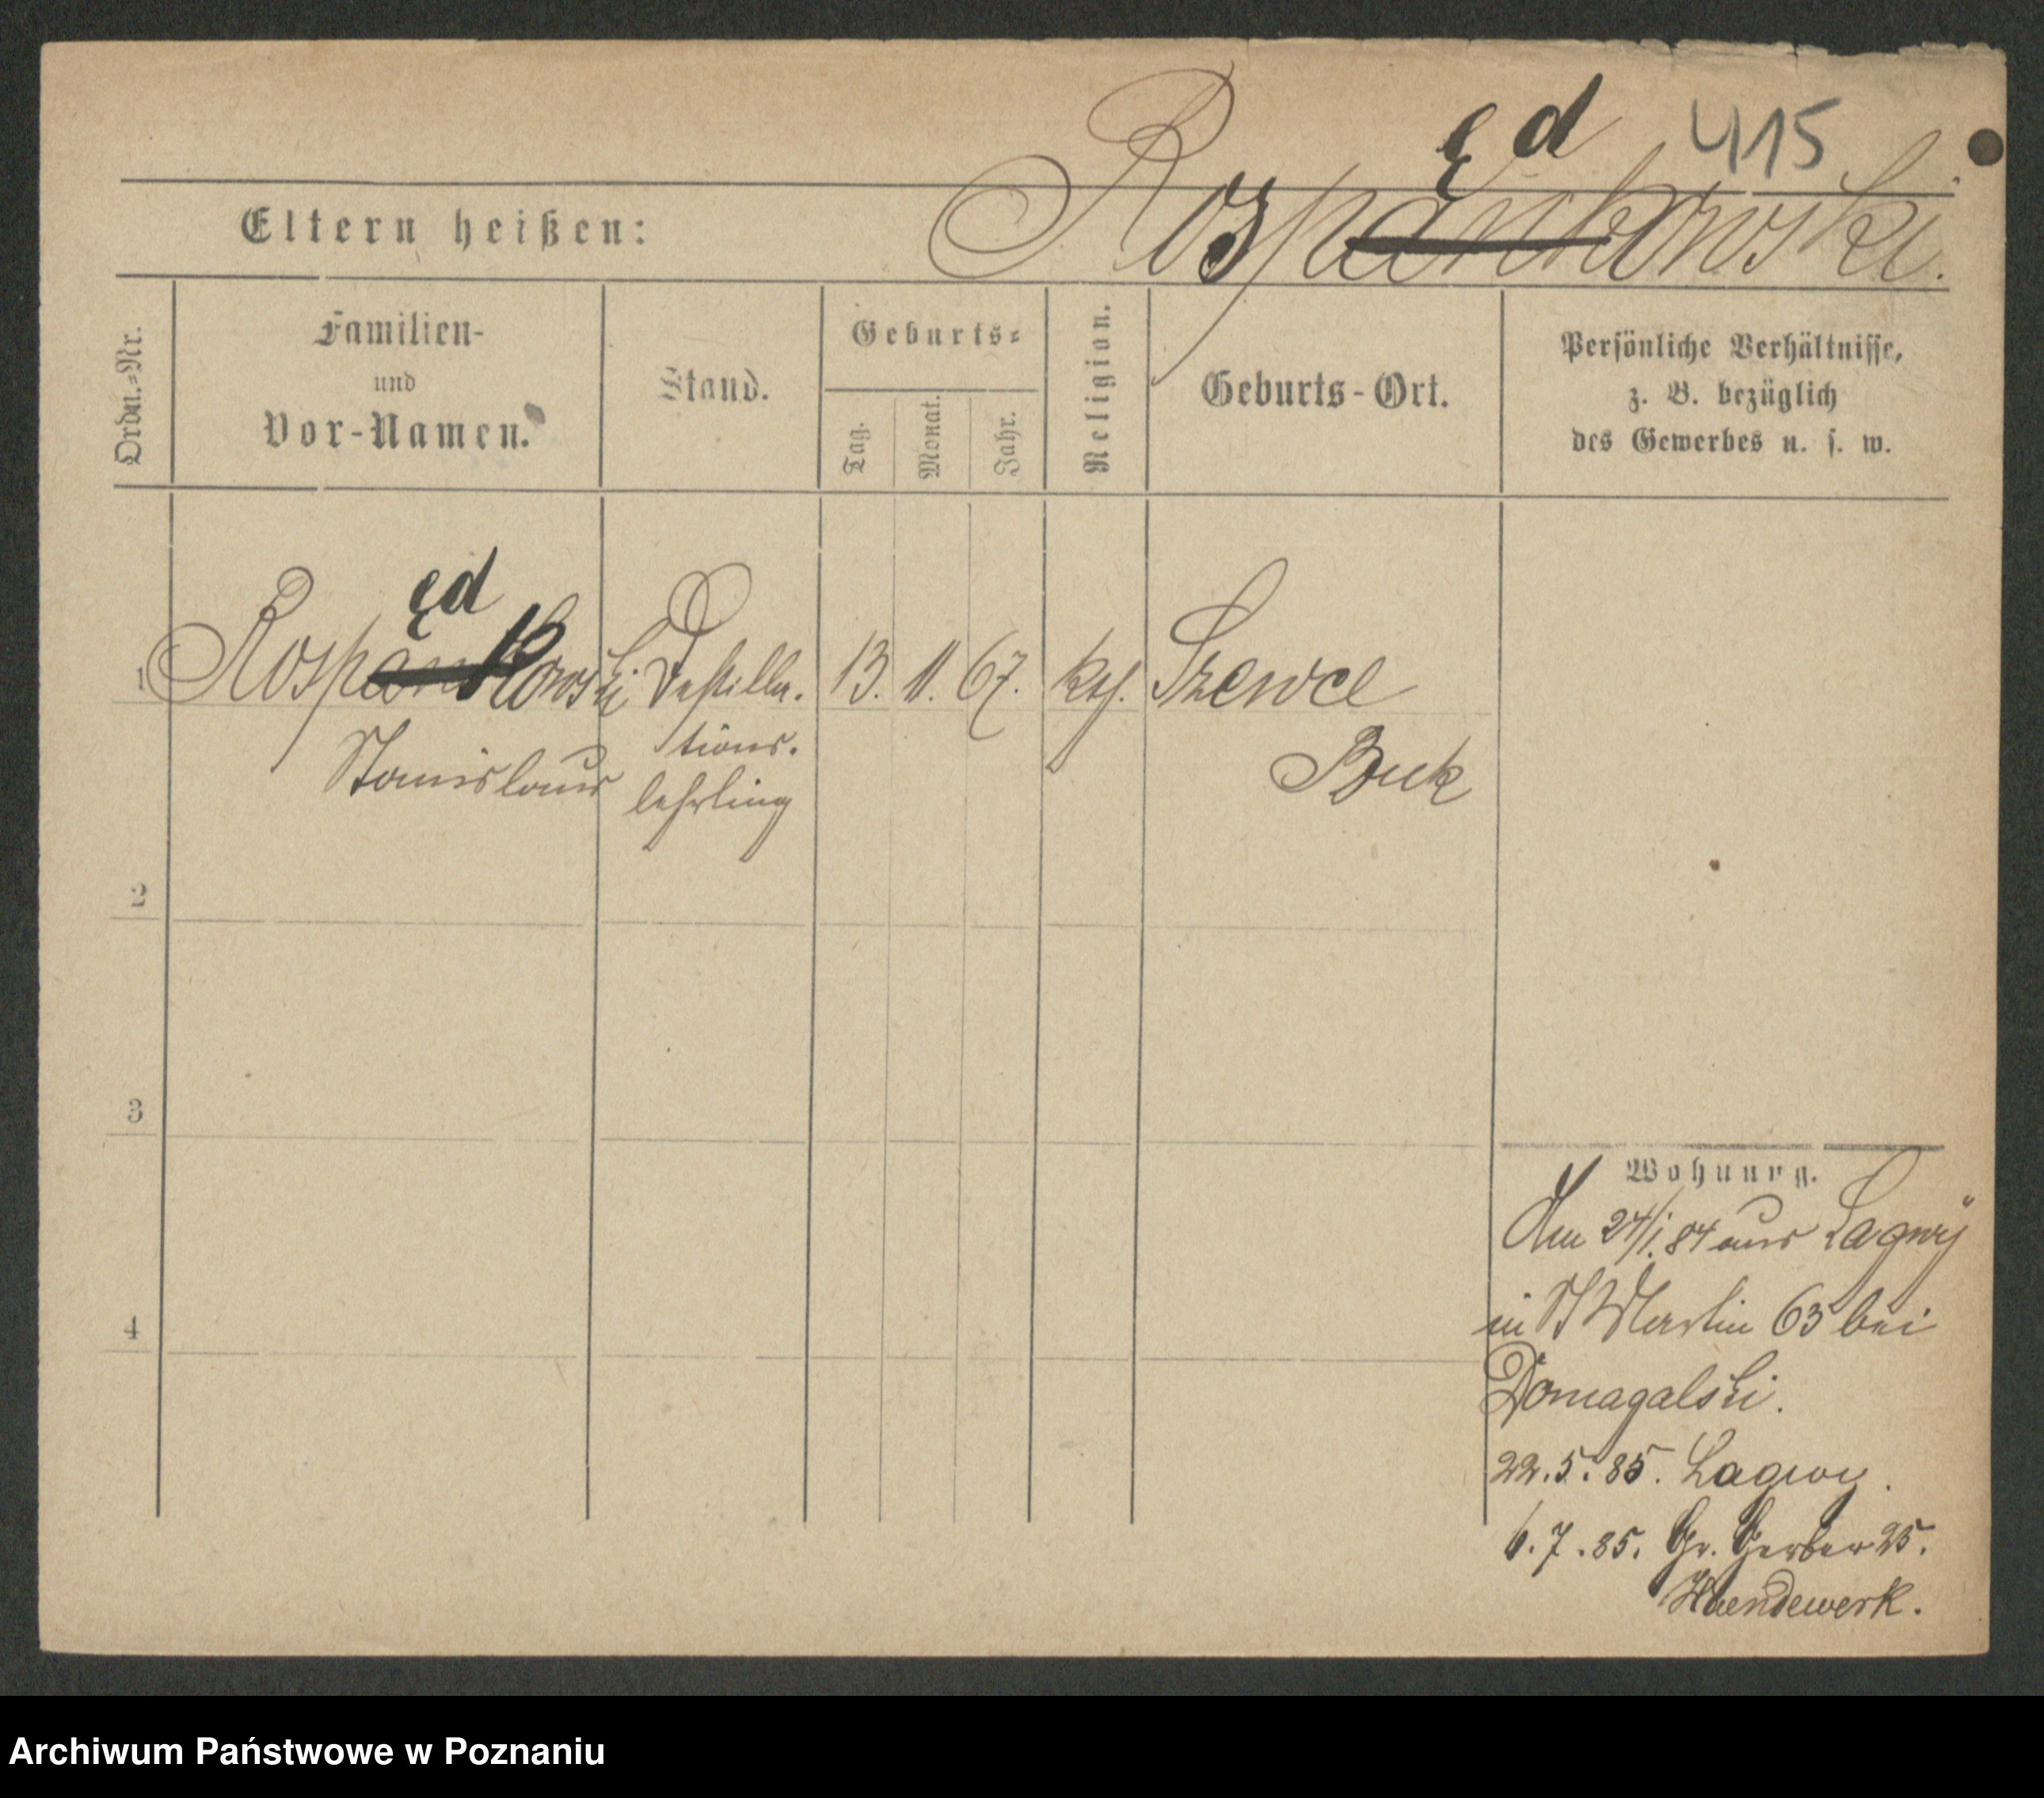 415
ęd
Rospankowski.
Eltern heißen:
Ordn.=Nr.
Familien-
und
Vor-Namen.
Stand.
Geburts=
Tag.
Monat.
Jahr.
Religion.
Geburts-Ort.
Persönliche Verhältnisse,
z. B. bezüglich
des Gewerbes u. s. w.
ęd
1 Rospankowski Destilla- 13. 11. 67. kth. Szewce
Stanislaus tions- Buk
lehrling
2
3
4
Wohnung.
Am 24/1. 84 aus Lagwy
in St Martin 63 bei
Domagalski.
22.5.85. Lagwy.
6.7.85. Gr. Gerber 25.
Haendewerk.
Archiwum Państwowe w Poznaniu